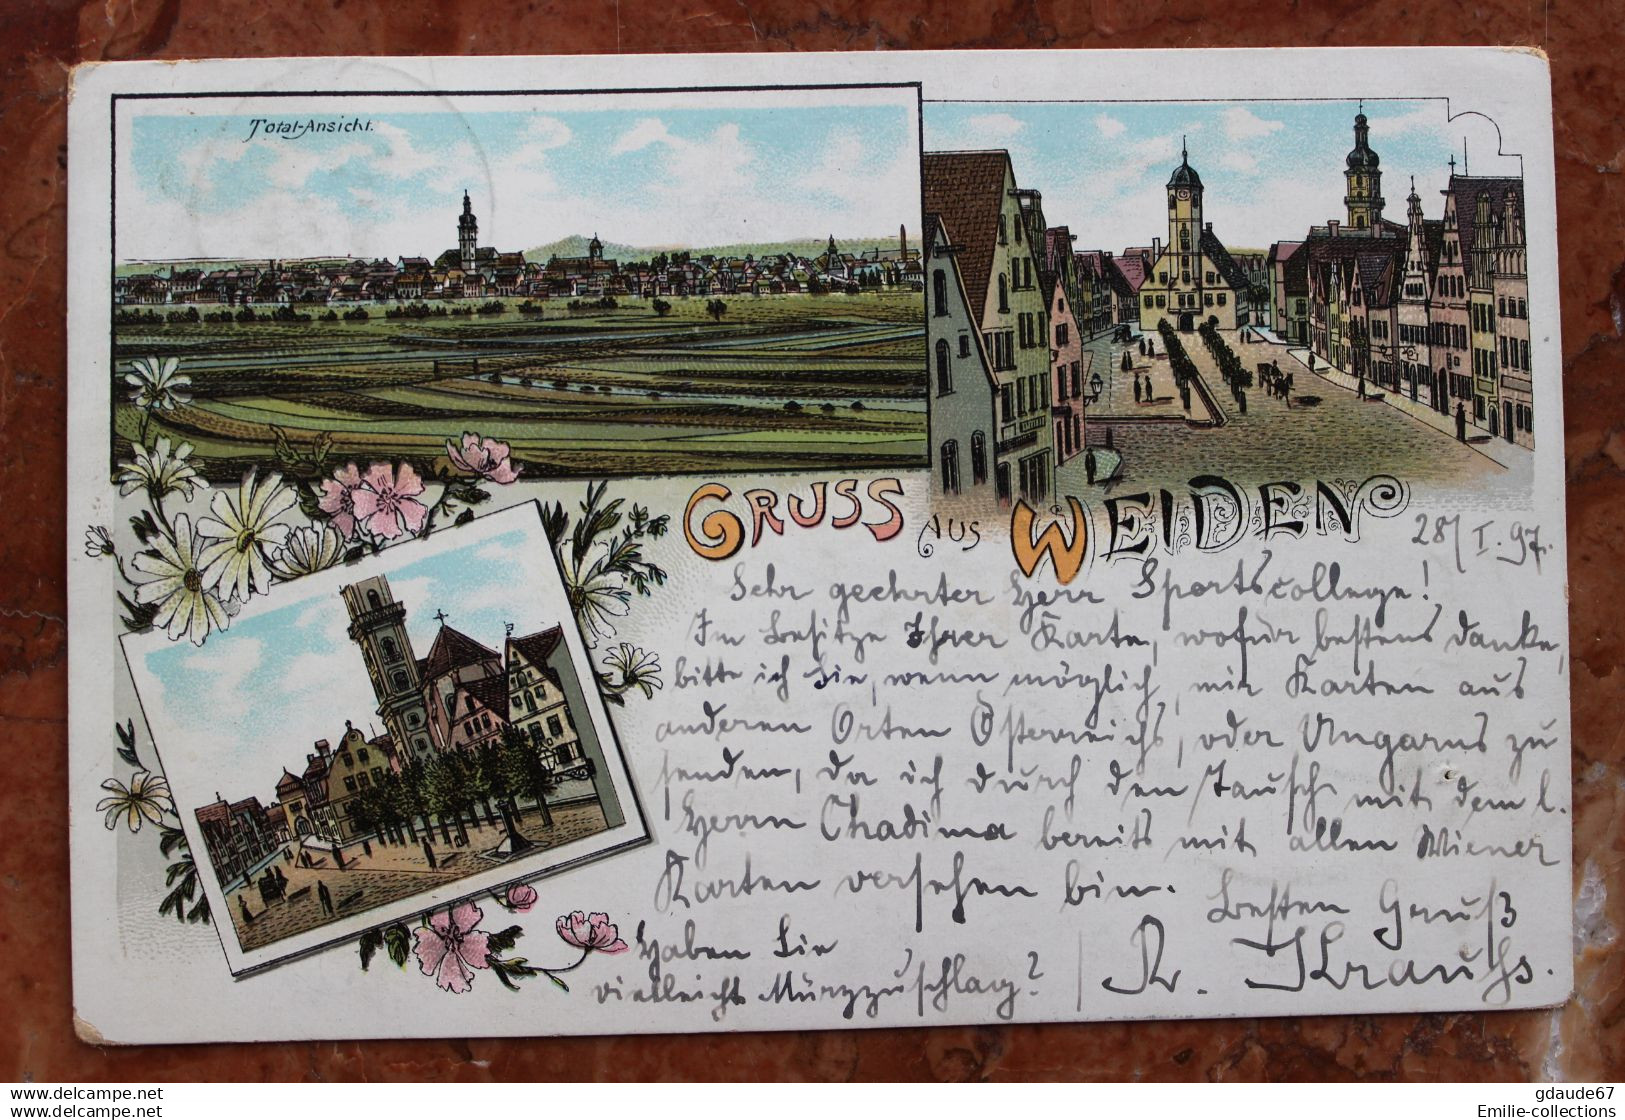 Total-Ansicht.
GRUSS AUS WEIDEN
28/I. 97.
Sehr geehrter Herr Sportscollege!
Im Besitze Ihrer Karte, wofür bestens danke,
bitte ich Sie, wenn möglich, mir Karten aus
anderen Orten Österreichs, oder Ungarns zu
senden, da ich durch den Tausch mit dem l.
Herrn Chadima bereits mit allen Wiener
Karten versehen bin.
Besten Gruß
Haben Sie
vielleicht Mürzzuschlag?
R. Krauss.
www.delcampe.net
www.delcampe.net
gdaude67
Emilie-collections